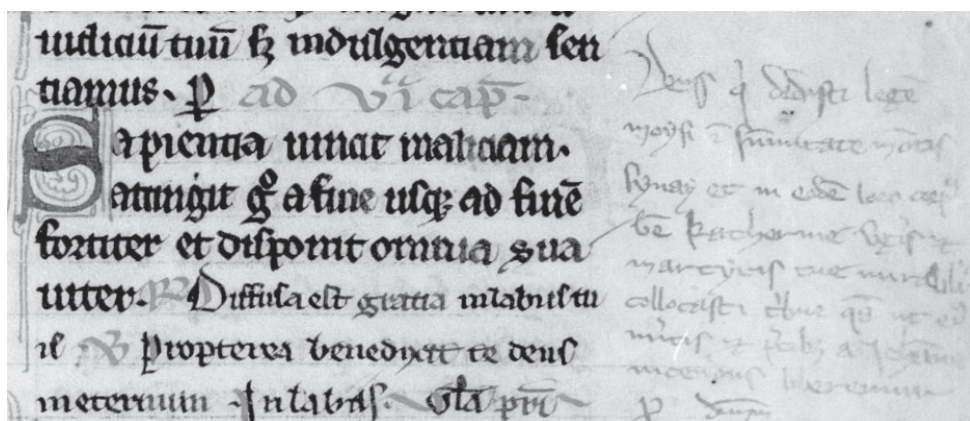 iudiciu᷃ tuu᷃ sꝫ indulgentiam sen
tiamus. P̲ ad vi cap̄.
Sapientia uincit maliciam.
attingit gͦ a fine usqꝫ ad fine᷃
fortiter et disponit omnia sua
uiter. Diffusa est gratia in labiis tu
is ℟ Propterea benedixit te deus
in eternum In labiis. Gl̄a pr̄i
Deus q̇ dedisti lege᷃
moysi i᷃ su᷃mitate mo᷃tis
synay et in eode᷃ loco corp᷃
be᷃ katherine v̇gis et
martyris tue mirabili
collocasti t᷃bue qs̄ ut ei᷃
et p᷃cibꝫ
incendiis liberemur